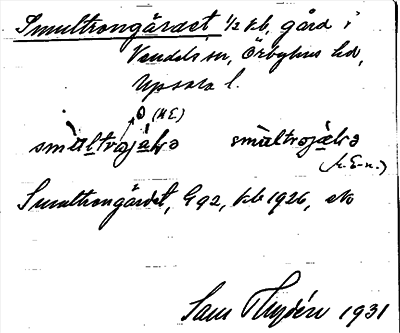 Smultrongärdet 1/2 kb, gård i
Vendels sn, Örbyhus hd,
Uppsala l.
(KE)
smultrojälə smultrojälə
(K.E-n.)
Smultrongärdet, G 92, kb 1926, ek
Sam Thydén 1931